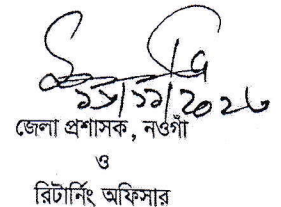 ১৮/১১/২০২৩
জেলা প্রশাসক, নওগাঁ
ও
রিটার্নিং অফিসার